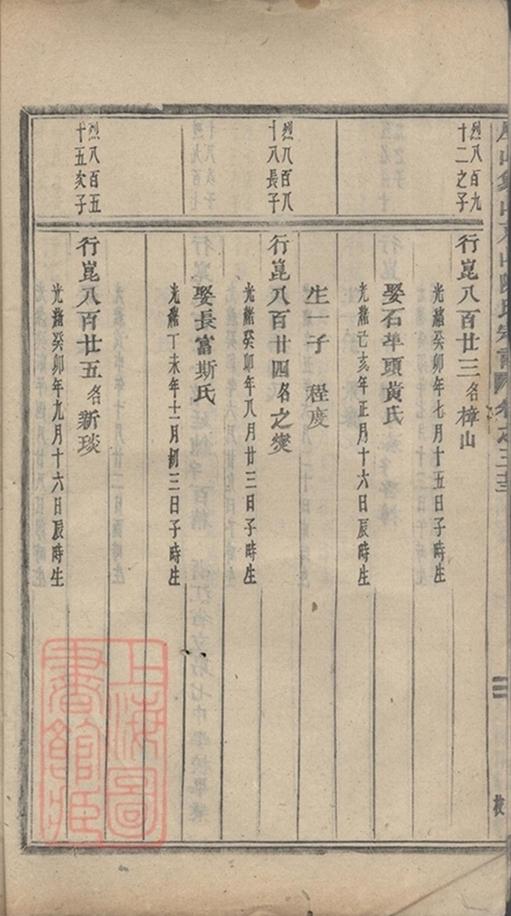 烈八百九
十二之子
行崑八百廿三名樟山
光緒癸卯年七月十五日子時生
娶石準頭黃氏
光緒亥年正月十六日辰時生
生一子 程度
烈八百八
十八長子
行崑八百廿四名之燮
光緒癸卯年八月廿三日子時生
娶長富斯氏
光緒丁未年十二月初三日子時生
烈八百五
十五次子
行崑八百廿五名新琰
光緒癸卯年九月十六日辰時生
上海圖
書館藏